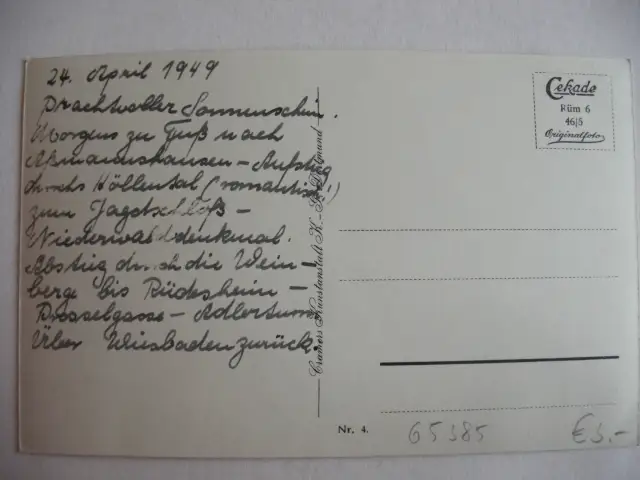 24. April 1949
Prachtvoller Sonnenschein.
Morgens zu Fuß nach
Aßmannshausen – Aufstieg
durchs Höllental (romantisch!)
zum Jagdschloß –
Niederwalddenkmal.
Abstieg durch die Wein-
berge bis Rüdesheim –
Drosselgasse – Adlerturm
Über Wiesbaden zurück.
Cramers Kunstanstalt K.-G. Dortmund
Cekade
Rüm 6
46/5
Originalfoto
Nr. 4.
65385
€3.-